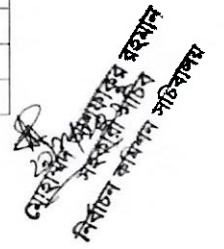 মোহাম্মদ রহমান
সহকারী সচিব
নির্বাচন কমিশন সচিবালয়